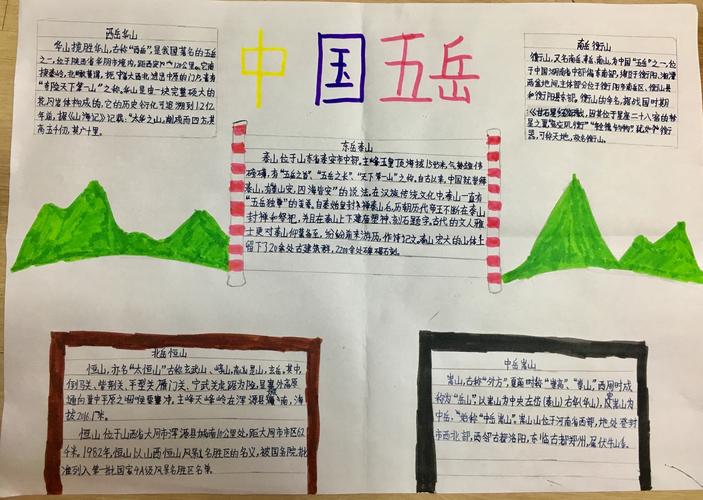 中国五岳
西岳华山
华山橫胜华山,古称"西岳",是我国著名的五岳
之一,位于陕西省华阴市境内,距西安市120公里。它南
接秦岭,北瞰黄渭,把守着大西北进出中原的门户,素有
"奇险天下第一山"之称。华山是由一块完整硕大的
花岗岩体构成的,它的历史衍化可追溯到1.2亿
年前,据《山海经》记载:"太华之山,削成而四方,其
高五千仞,其广十里。
南岳衡山
衡山,又名南岳、寿岳、南山,为中国"五岳"之一,位
于中国湖南省中部偏东南部,
和衡阳县东部。衡山的命名,据战国时期
《甘石星经》记载,因其位于星座二十八宿的轸
星之翼,
可称天地,故名衡山。
东岳泰山
泰山位于山东省泰安市中部。主峰玉皇顶海拔1545米,气势雄伟
磅礴,有"五岳之首"、"五岳之长"、"天下第一山"之称。自古以来,中国就崇拜
泰山,有"泰山安,四海皆安"的说法。在汉族传统文化中,泰山一直有
"五岳独尊"的美誉。自秦始皇封禅泰山后,历朝历代帝王不断在泰山
封禅和祭祀,并且在泰山上下建庙塑神,刻石题字。古代的文人雅
士更对泰山仰慕备至,纷纷前来游历,作诗记文。泰山宏大的山体上
留下了20余处古建筑群,2200余处碑碣石刻。
北岳恒山
恒山,亦名"太恒山",古称玄武山、崞山、高是山、玄岳。其中,
倒马关、紫荆关、平型关、雁门关、宁武关虎踞为险,是塞外高原
通向冀中平原之咽喉要冲。主峰天峰岭在浑源县城南,海
拔2016.1米。
恒山位于山西省大同市浑源县城南10公里处,距大同市市区62
千米。1982年,恒山以山西恒山风景名胜区的名义,被国务院批
准列入第一批国家4A级风景名胜区名单。
中岳嵩山
嵩山,古称"外方",夏商时称"崇高"、"崇山",西周时成
称为"岳山",以嵩山为中央左岱(泰山)右华(华山),定嵩山为
中岳,始称"中岳嵩山"。嵩山位于河南省西部,地处登封
市西北部,西邻古都洛阳,东临古都郑州,属伏牛山系。